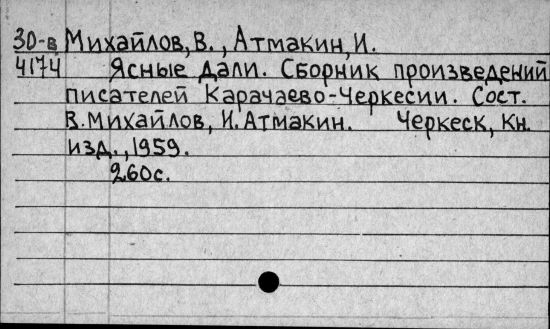 30-в Михайлов, В., Атмакин, И.
4174 Ясные дали. Сборник произведений
писателей Карачаево-Черкесии. Сост.
В. Михайлов, И. Атмакин. Черкеск, Кн.
изд., 1959.
260с.